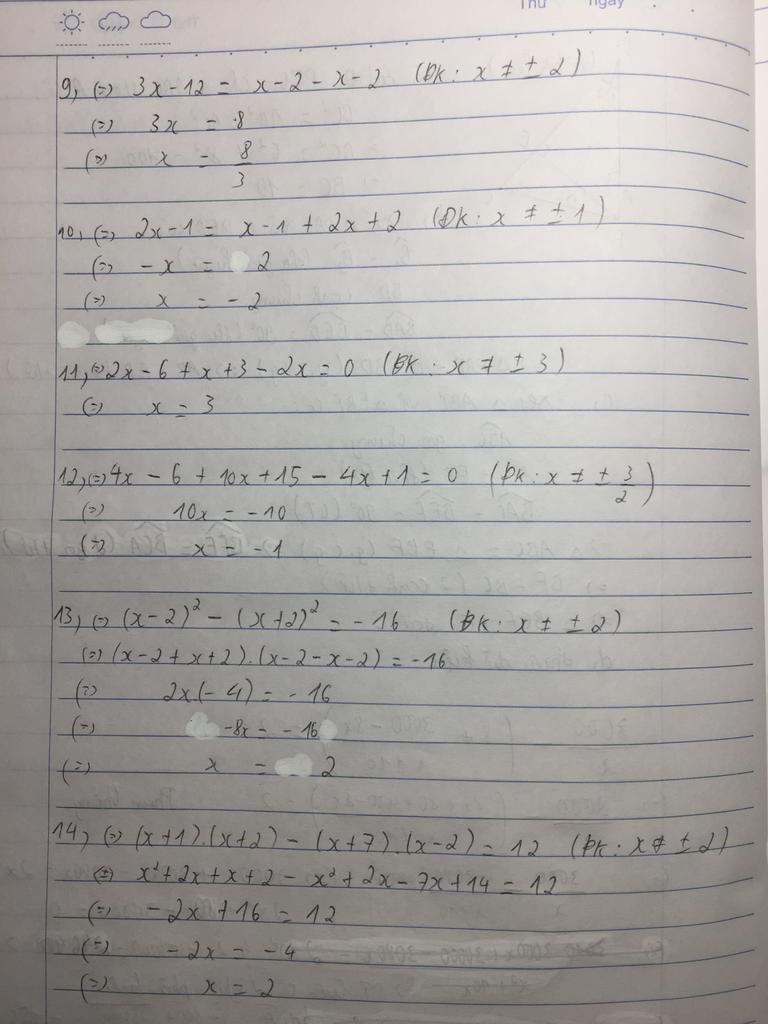 Thứ ngày
9, (=) 3x - 12 = x - 2 - x - 2 (Đk : x ≠ ± 2)
(=) 3x = 8
(=) x = 8/3
10, (=) 2x - 1 = x - 1 + 2x + 2 (Đk : x ≠ ± 1)
(=) - x = 2
(=) x = - 2
11, (=) 2x - 6 + x + 3 - 2x = 0 (Đk : x ≠ ± 3)
(=) x = 3
12, (=) 4x - 6 + 10x + 15 - 4x + 1 = 0 (Đk : x ≠ ± 3/2)
(=) 10x = -10
(=) x = -1
13, (=) (x - 2)² - (x + 2)² = - 16 (Đk : x ≠ ± 2)
(=) (x - 2 + x + 2) . (x - 2 - x - 2) = -16
(=) 2x.(- 4) = - 16
(=) -8x = - 16
(=) x = 2
14, (=) (x + 1) . (x + 2) - (x + 7) . (x - 2) = 12 (Đk : x ≠ ± 2)
(=) x² + 2x + x + 2 - x² + 2x - 7x + 14 = 12
(=) - 2x + 16 = 12
(=) - 2x = - 4
(=) x = 2